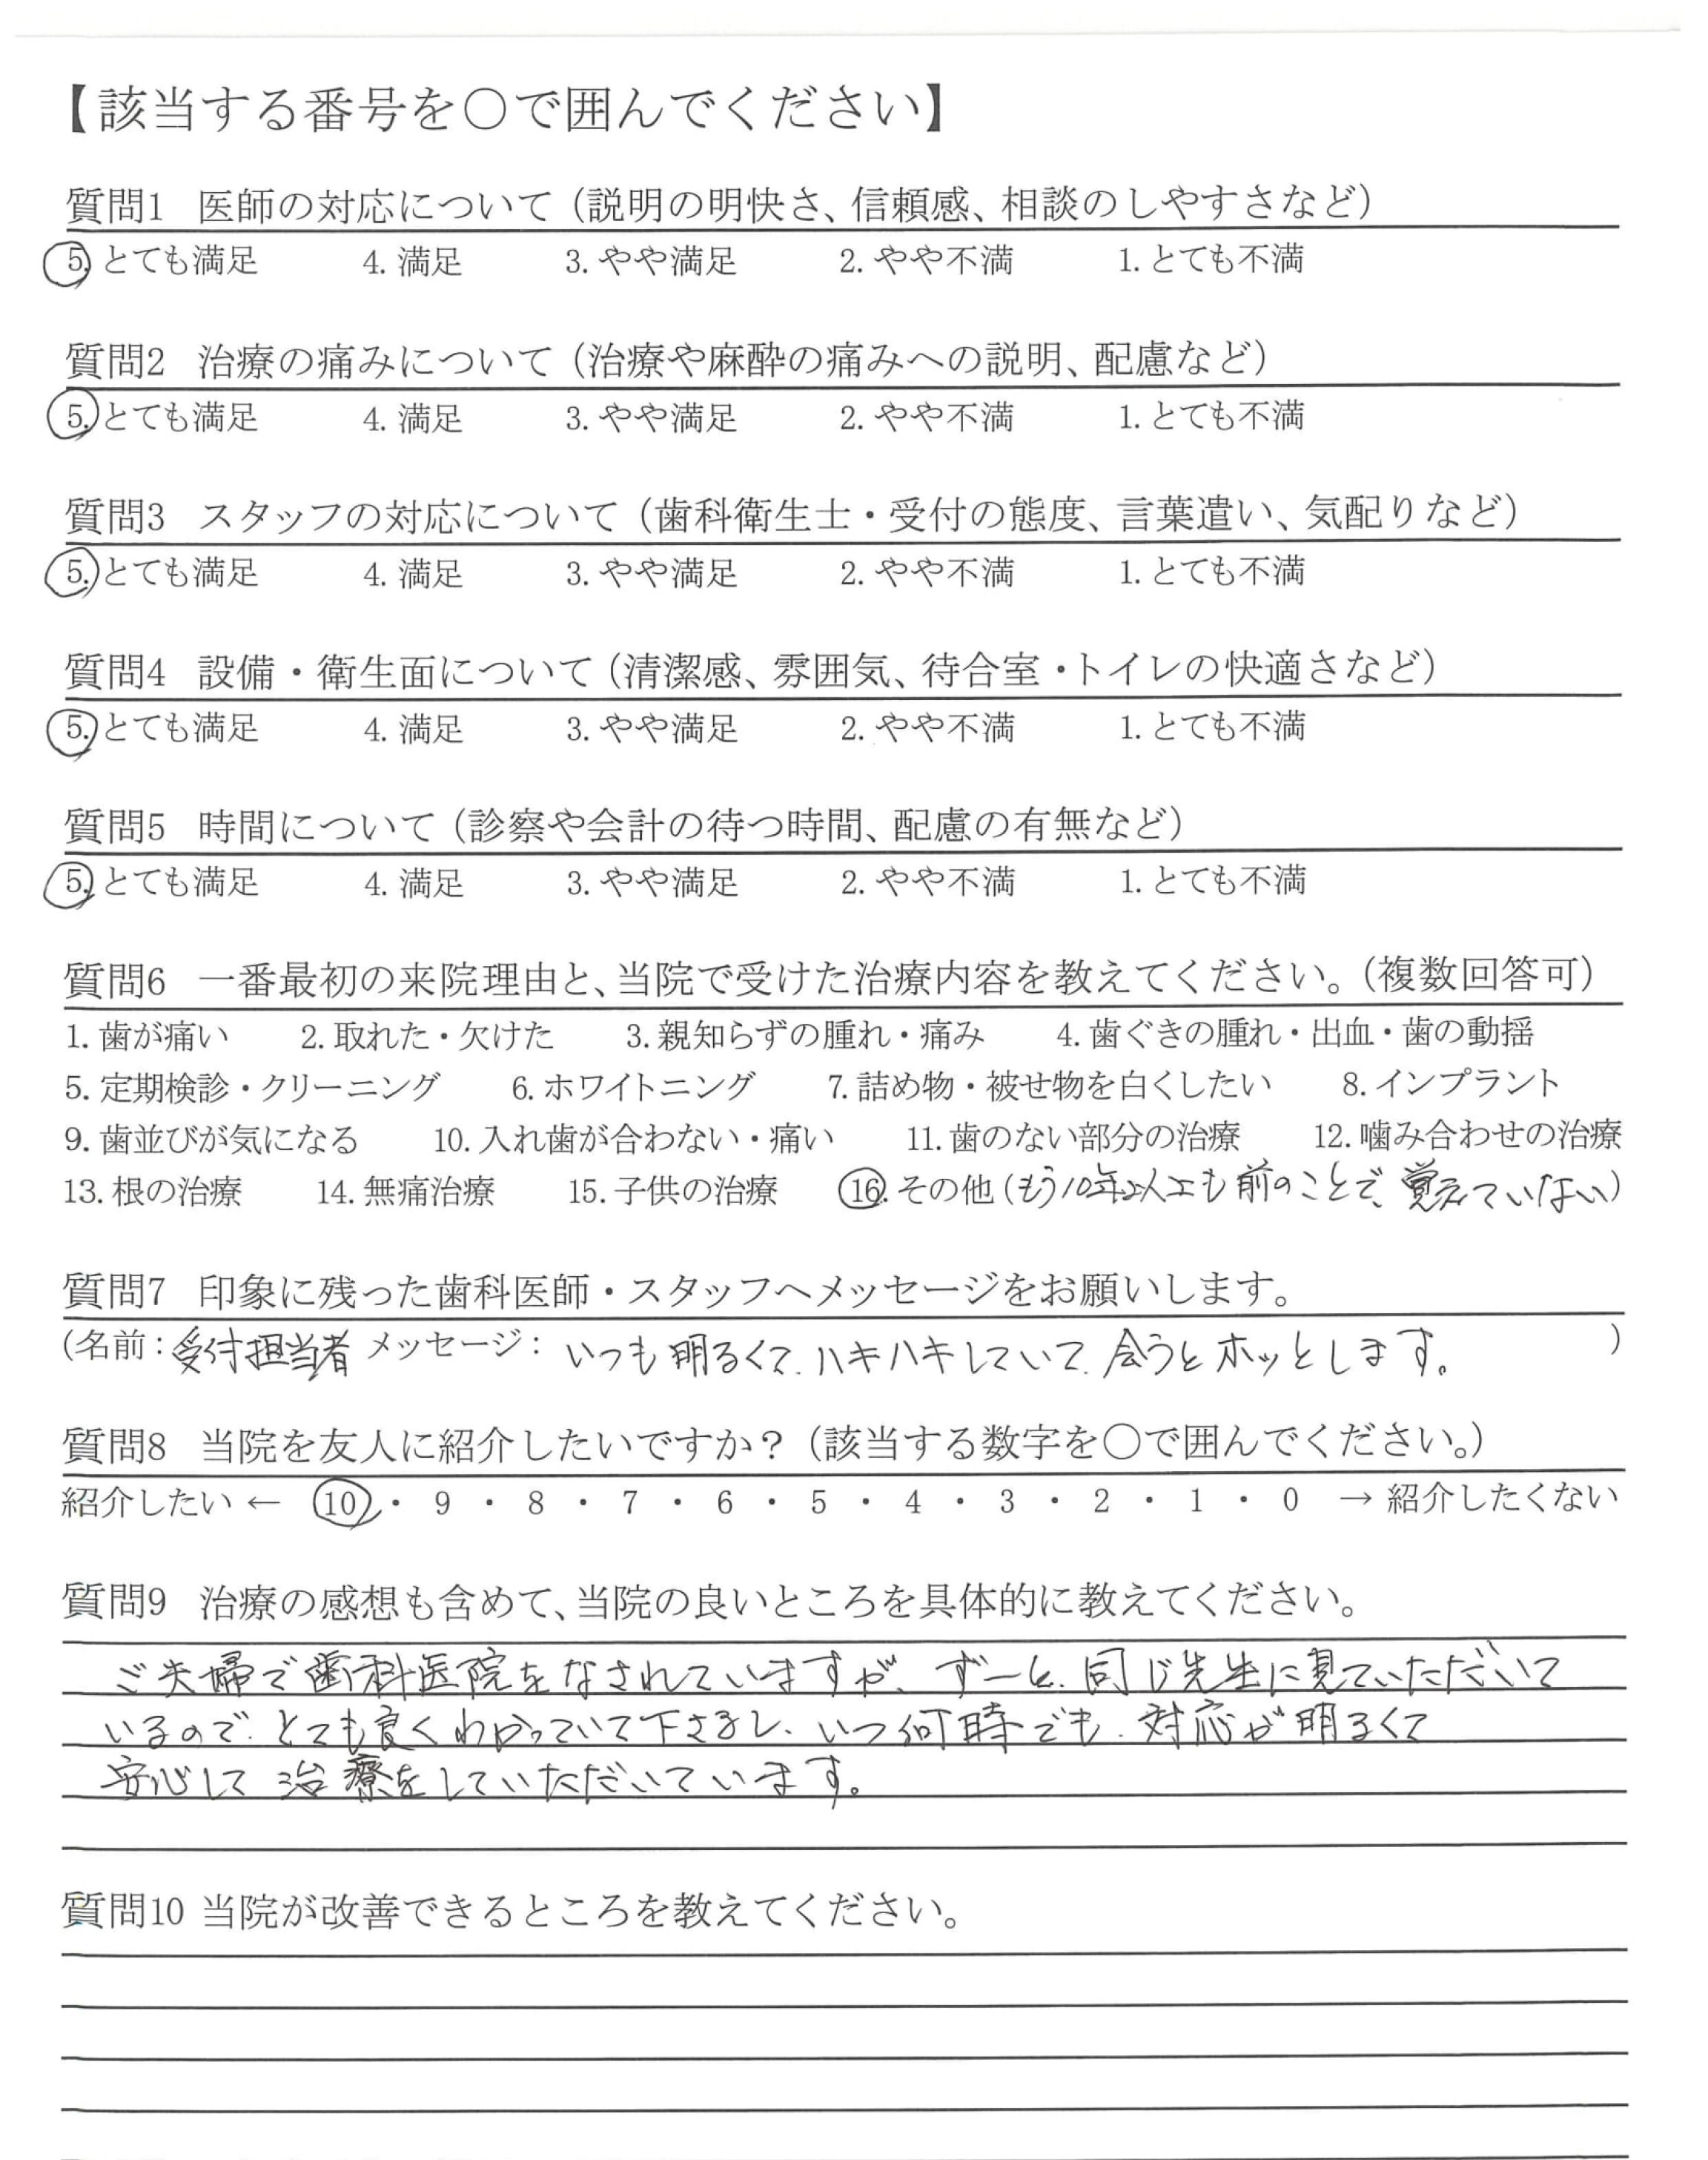 【該当する番号を○で囲んでください】
質問1 医師の対応について（説明の明快さ、信頼感、相談のしやすさなど）
5. とても満足 4. 満足 3. やや満足 2. やや不満 1. とても不満
質問2 治療の痛みについて（治療や麻酔の痛みへの説明、配慮など）
5. とても満足 4. 満足 3. やや満足 2. やや不満 1. とても不満
質問3 スタッフの対応について（歯科衛生士・受付の態度、言葉遣い、気配りなど）
5. とても満足 4. 満足 3. やや満足 2. やや不満 1. とても不満
質問4 設備・衛生面について（清潔感、雰囲気、待合室・トイレの快適さなど）
5. とても満足 4. 満足 3. やや満足 2. やや不満 1. とても不満
質問5 時間について（診察や会計の待つ時間、配慮の有無など）
5. とても満足 4. 満足 3. やや満足 2. やや不満 1. とても不満
質問6 一番最初の来院理由と、当院で受けた治療内容を教えてください。（複数回答可）
1. 歯が痛い 2. 取れた・欠けた 3. 親知らずの腫れ・痛み 4. 歯ぐきの腫れ・出血・歯の動揺
5. 定期検診・クリーニング 6. ホワイトニング 7. 詰め物・被せ物を白くしたい 8. インプラント
9. 歯並びが気になる 10. 入れ歯が合わない・痛い 11. 歯のない部分の治療 12. 噛み合わせの治療
13. 根の治療 14. 無痛治療 15. 子供の治療 16. その他（もう10年以上も前のことで、覚えていない）
質問7 印象に残った歯科医師・スタッフへメッセージをお願いします。
（名前：受付担当者 メッセージ： いつも明るくて、ハキハキしていて、会うとホッとします。）
質問8 当院を友人に紹介したいですか？（該当する数字を○で囲んでください。）
紹介したい ← 10 ・ 9 ・ 8 ・ 7 ・ 6 ・ 5 ・ 4 ・ 3 ・ 2 ・ 1 ・ 0 → 紹介したくない
質問9 治療の感想も含めて、当院の良いところを具体的に教えてください。
ご夫婦で歯科医院をなされていますが、ずーと、同じ先生に見ていただいて
いるので、とても良くわかっていて下さるし、いつ何時でも、対応が明るくて
安心して治療をしていただいています。
質問10 当院が改善できるところを教えてください。